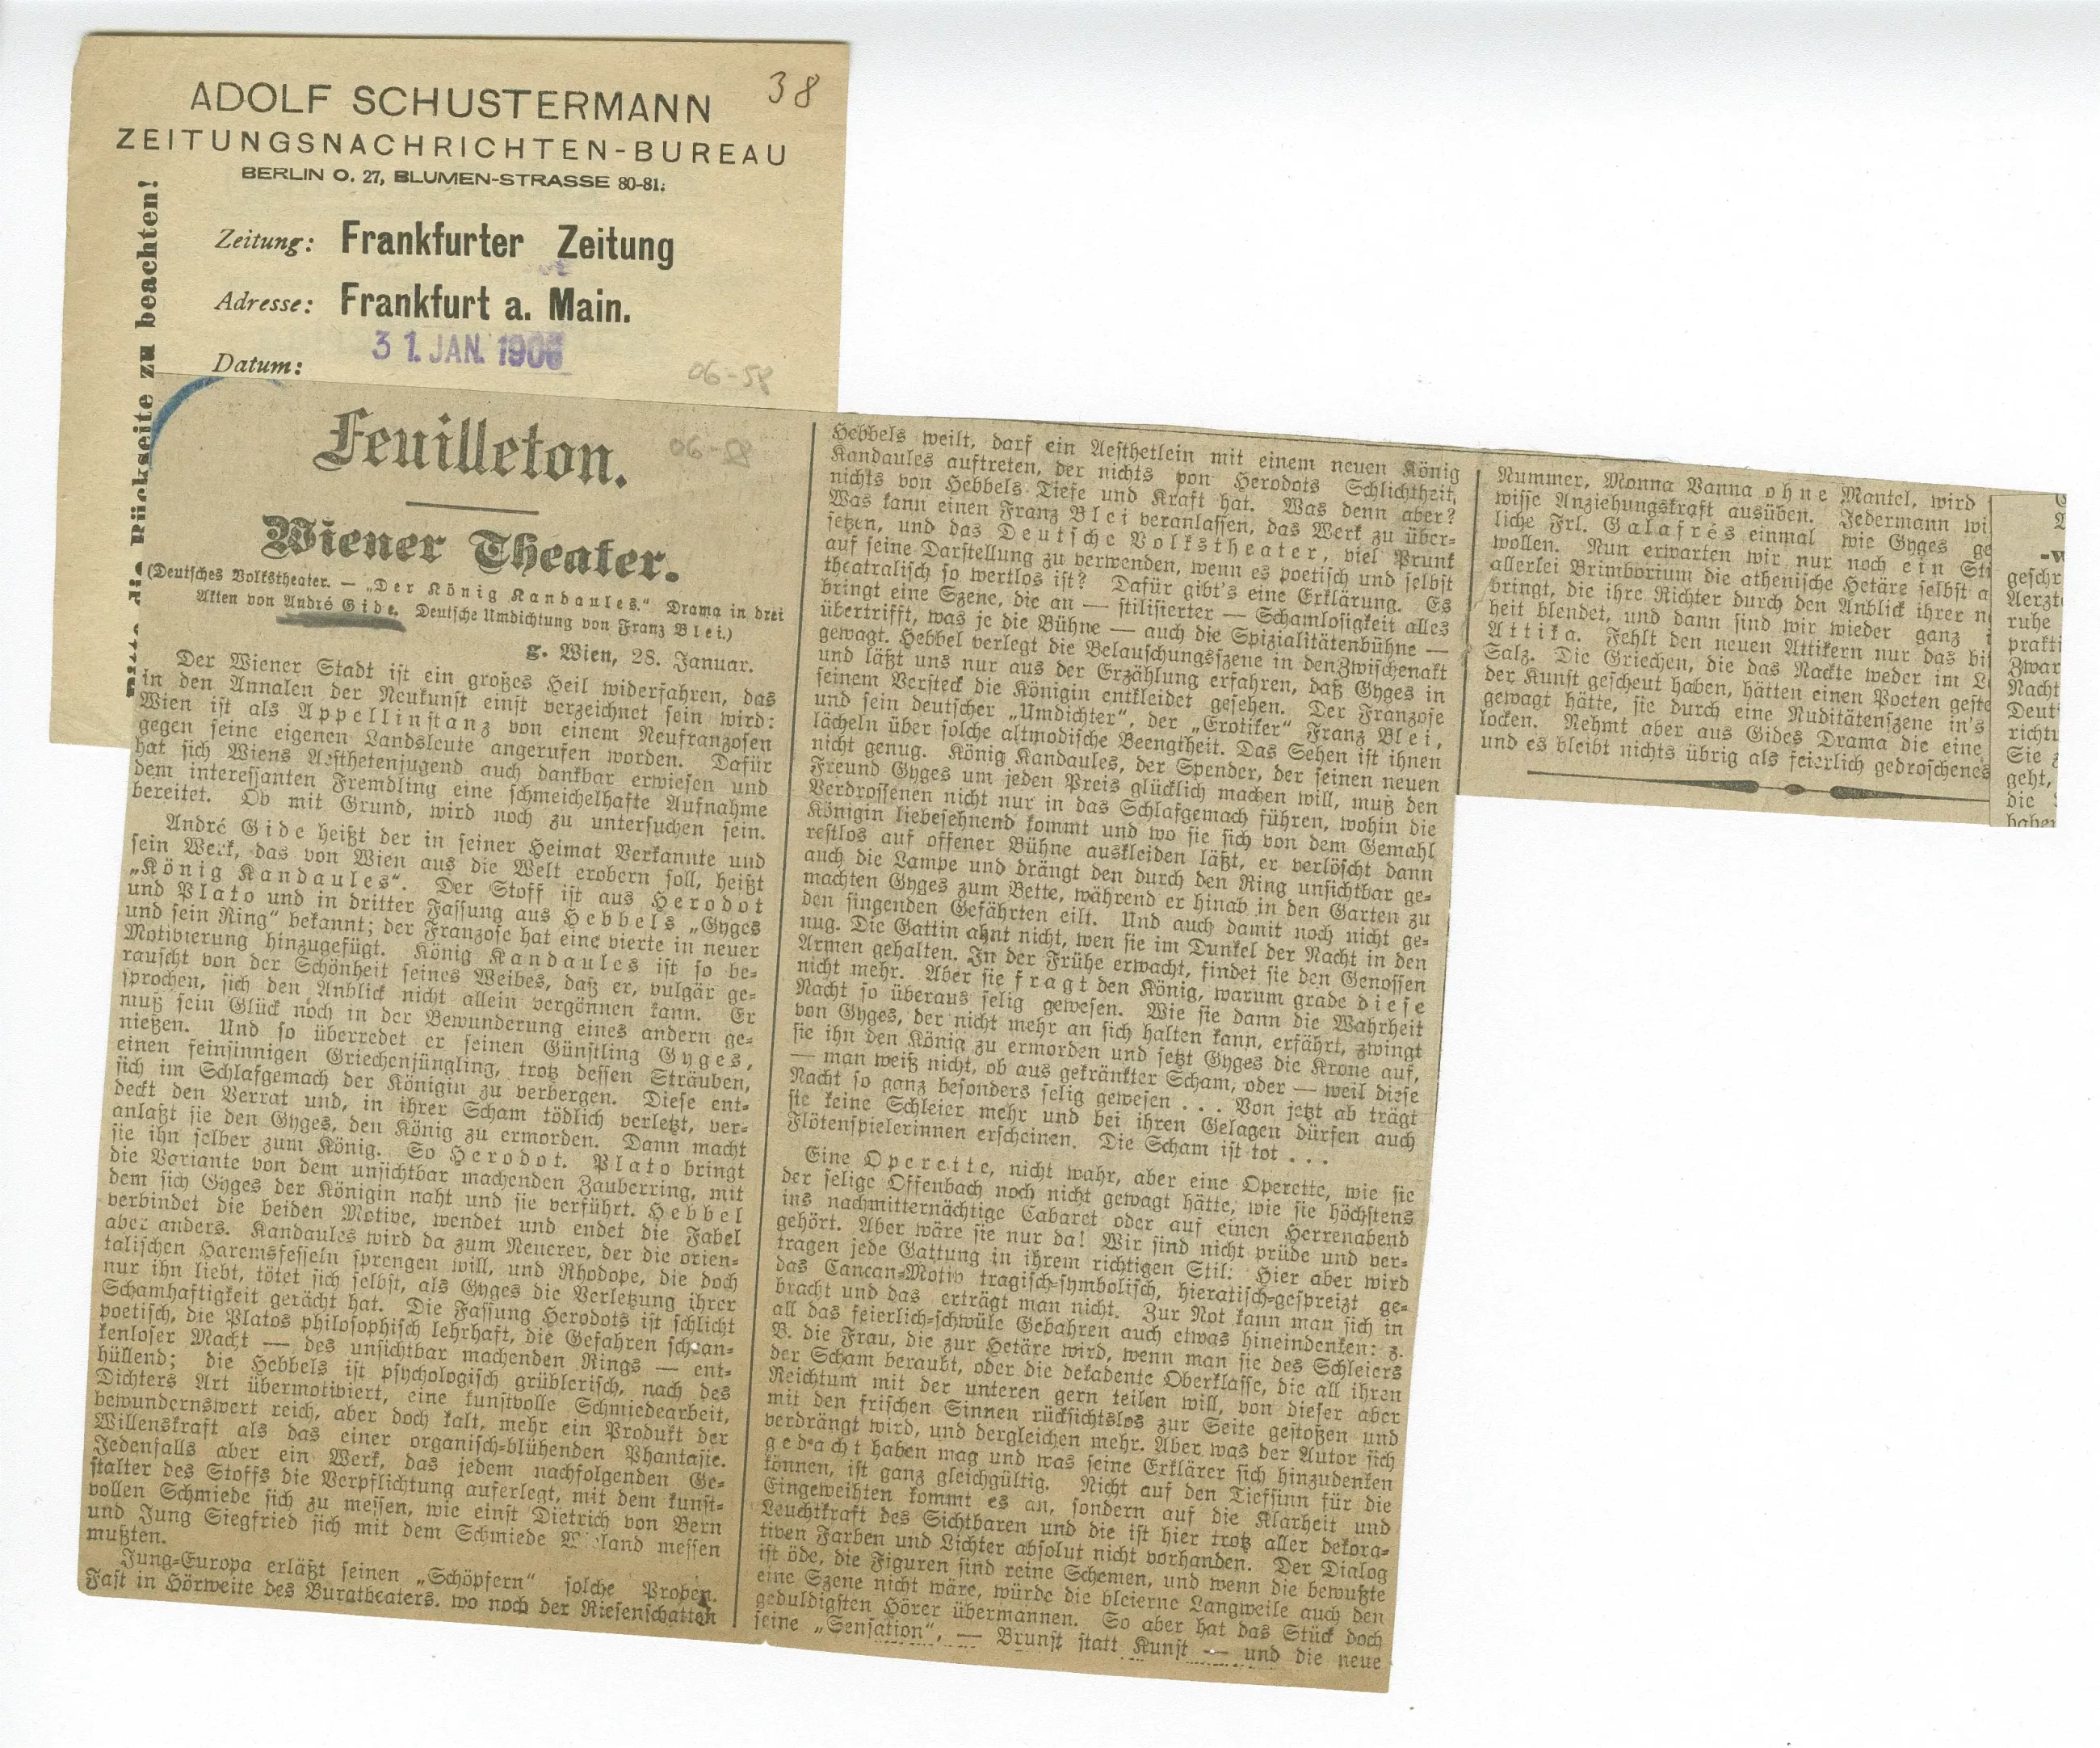 38
ADOLF SCHUSTERMANN
ZEITUNGSNACHRICHTEN-BUREAU
BERLIN O. 27, BLUMEN-STRASSE 80-81.
Zeitung: Frankfurter Zeitung
Adresse: Frankfurt a. Main.
Datum: 31. JAN. 1906
06-58
Rückseite zu beachten!
Feuilleton.
06-58
Wiener Theater.
(Deutsches Volkstheater. — „Der König Kandaules." Drama in drei
Akten von André Gide. Deutsche Umdichtung von Franz Blei.)
g. Wien, 28. Januar.
Der Wiener Stadt ist ein großes Heil widerfahren, das
in den Annalen der Neukunst einst verzeichnet sein wird:
Wien ist als Appellinstanz von einem Neufranzosen
gegen seine eigenen Landsleute angerufen worden. Dafür
hat sich Wiens Aesthetenjugend auch dankbar erwiesen und
dem interessanten Fremdling eine schmeichelhafte Aufnahme
bereitet. Ob mit Grund, wird noch zu untersuchen sein.
André Gide heißt der in seiner Heimat Verkannte und
sein Werk, das von Wien aus die Welt erobern soll, heißt
„König Kandaules". Der Stoff ist aus Herodot
und Plato und in dritter Fassung aus Hebbels „Gyges
und sein Ring" bekannt; der Franzose hat eine vierte in neuer
Motivierung hinzugefügt. König Kandaules ist so be-
rauscht von der Schönheit seines Weibes, daß er, vulgär ge-
sprochen, sich den Anblick nicht allein vergönnen kann. Er
muß sein Glück noch in der Bewunderung eines andern ge-
nießen. Und so überredet er seinen Günstling Gyges,
einen feinsinnigen Griechenjüngling, trotz dessen Sträuben,
sich im Schlafgemach der Königin zu verbergen. Diese ent-
deckt den Verrat und, in ihrer Scham tödlich verletzt, ver-
anlaßt sie den Gyges, den König zu ermorden. Dann macht
sie ihn selber zum König. So Herodot. Plato bringt
die Variante von dem unsichtbar machenden Zauberring, mit
dem sich Gyges der Königin naht und sie verführt. Hebbel
verbindet die beiden Motive, wendet und endet die Fabel
aber anders. Kandaules wird da zum Neuerer, der die orien-
talischen Haremsfesseln sprengen will, und Rhodope, die doch
nur ihn liebt, tötet sich selbst, als Gyges die Verletzung ihrer
Schamhaftigkeit gerächt hat. Die Fassung Herodots ist schlicht
poetisch, die Platos philosophisch lehrhaft, die Gefahren schran-
kenloser Macht — des unsichtbar machenden Rings — ent-
hüllend; die Hebbels ist psychologisch grüblerisch, nach des
Dichters Art übermotiviert, eine kunstvolle Schmiedearbeit,
bewundernswert reich, aber doch kalt, mehr ein Produkt der
Willenskraft als das einer organisch-blühenden Phantasie.
Jedenfalls aber ein Werk, das jedem nachfolgenden Ge-
stalter des Stoffs die Verpflichtung auferlegt, mit dem kunst-
vollen Schmiede sich zu messen, wie einst Dietrich von Bern
und Jung Siegfried sich mit dem Schmiede Wieland messen
mußten.
Jung-Europa erläßt seinen „Schöpfern" solche Proben.
Fast in Hörweite des Burgtheaters, wo noch der Riesenschatten
Hebbels weilt, darf ein Aesthetlein mit einem neuen König
Kandaules auftreten, der nichts von Herodots Schlichtheit,
nichts von Hebbels Tiefe und Kraft hat. Was denn aber?
Was kann einen Franz Blei veranlassen, das Werk zu über-
setzen, und das Deutsche Volkstheater, viel Prunk
auf seine Darstellung zu verwenden, wenn es poetisch und selbst
theatralisch so wertlos ist? Dafür gibt's eine Erklärung. Es
bringt eine Szene, die an — stilisierter — Schamlosigkeit alles
übertrifft, was je die Bühne — auch die Spizialitätenbühne —
gewagt. Hebbel verlegt die Belauschungsszene in den Zwischenakt
und läßt uns nur aus der Erzählung erfahren, daß Gyges in
seinem Versteck die Königin entkleidet gesehen. Der Franzose
und sein deutscher „Umdichter", der „Erotiker" Franz Blei,
lächeln über solche altmodische Beengtheit. Das Sehen ist ihnen
nicht genug. König Kandaules, der Spender, der seinen neuen
Freund Gyges um jeden Preis glücklich machen will, muß den
Verdrossenen nicht nur in das Schlafgemach führen, wohin die
Königin liebesehnend kommt und wo sie sich von dem Gemahl
restlos auf offener Bühne auskleiden läßt, er verlöscht dann
auch die Lampe und drängt den durch den Ring unsichtbar ge-
machten Gyges zum Bette, während er hinab in den Garten zu
den singenden Gefährten eilt. Und auch damit noch nicht ge-
nug. Die Gattin ahnt nicht, wen sie im Dunkel der Nacht in den
Armen gehalten. In der Frühe erwacht, findet sie den Genossen
nicht mehr. Aber sie fragt den König, warum grade diese
Nacht so überaus selig gewesen. Wie sie dann die Wahrheit
von Gyges, der nicht mehr an sich halten kann, erfährt, zwingt
sie ihn den König zu ermorden und setzt Gyges die Krone auf,
— man weiß nicht, ob aus gekränkter Scham, oder — weil diese
Nacht so ganz besonders selig gewesen . . . Von jetzt ab trägt
sie keine Schleier mehr und bei ihren Gelagen dürfen auch
Flötenspielerinnen erscheinen. Die Scham ist tot . . .
Eine Operette, nicht wahr, aber eine Operette, wie sie
der selige Offenbach noch nicht gewagt hätte, wie sie höchstens
ins nachmitternächtige Cabaret oder auf einen Herrenabend
gehört. Aber wäre sie nur da! Wir sind nicht prüde und ver-
tragen jede Gattung in ihrem richtigen Stil. Hier aber wird
das Cancan-Motiv tragisch-symbolisch, hieratisch-gespreizt ge-
bracht und das erträgt man nicht. Zur Not kann man sich in
all das feierlich-schwüle Gebahren auch etwas hineindenken: z.
B. die Frau, die zur Hetäre wird, wenn man sie des Schleiers
der Scham beraubt, oder die dekadente Oberklasse, die all ihren
Reichtum mit der unteren gern teilen will, von dieser aber
mit den frischen Sinnen rücksichtslos zur Seite gestoßen und
verdrängt wird, und dergleichen mehr. Aber was der Autor sich
gedacht haben mag und was seine Erklärer sich hinzudenken
können, ist ganz gleichgültig. Nicht auf den Tiefsinn für die
Eingeweihten kommt es an, sondern auf die Klarheit und
Leuchtkraft des Sichtbaren und die ist hier trotz aller dekora-
tiven Farben und Lichter absolut nicht vorhanden. Der Dialog
ist öde, die Figuren sind reine Schemen, und wenn die bewußte
eine Szene nicht wäre, würde die bleierne Langweile auch den
geduldigsten Hörer übermannen. So aber hat das Stück doch
seine „Sensation", — Brunst statt Kunst — und die neue
Nummer, Monna Vanna ohne Mantel, wird
wisse Anziehungskraft ausüben. Jedermann wi
liche Frl. Galafrés einmal wie Gyges ge
wollen. Nun erwarten wir nur noch ein Stü
allerlei Brimborium die athenische Hetäre selbst a
bringt, die ihre Richter durch den Anblick ihrer n
heit blendet, und dann sind wir wieder ganz i
Attika. Fehlt den neuen Attikern nur das bi
Salz. Die Griechen, die das Nackte weder im L
der Kunst gescheut haben, hätten einen Poeten geste
gewagt hätte, sie durch eine Nuditätenszene in's
locken. Nehmt aber aus Gides Drama die eine
und es bleibt nichts übrig als feierlich gedroschenes
geschr
Aerzt
ruhe
prakti
Zwar
Nacht
Deut
richtu
Sie z
geht,
die
haben